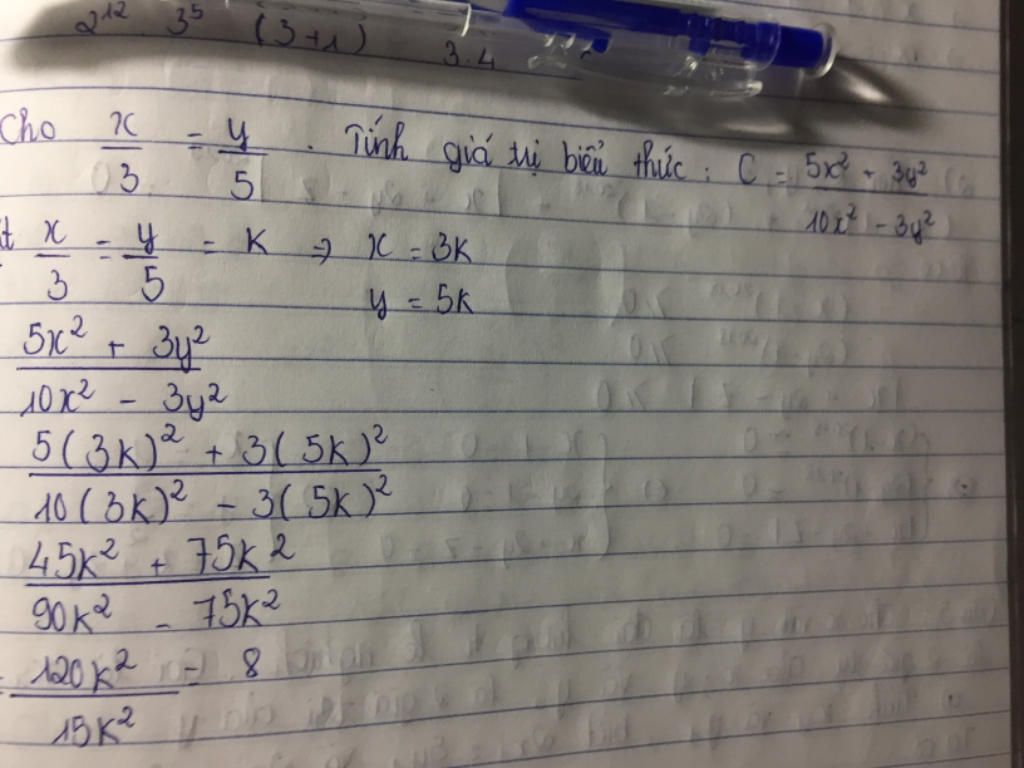 2¹² 3⁵ (3+1) 3.4
Cho x/3 = y/5 . Tính giá trị biểu thức : C = (5x² + 3y²)/(10x² - 3y²)
x/3 = y/5 = k ⇒ x = 3k
y = 5k
5x² + 3y²
10x² - 3y²
5(3k)² + 3(5k)²
10(3k)² - 3(5k)²
45k² + 75k²
90k² - 75k²
= 120k²/15k² = 8